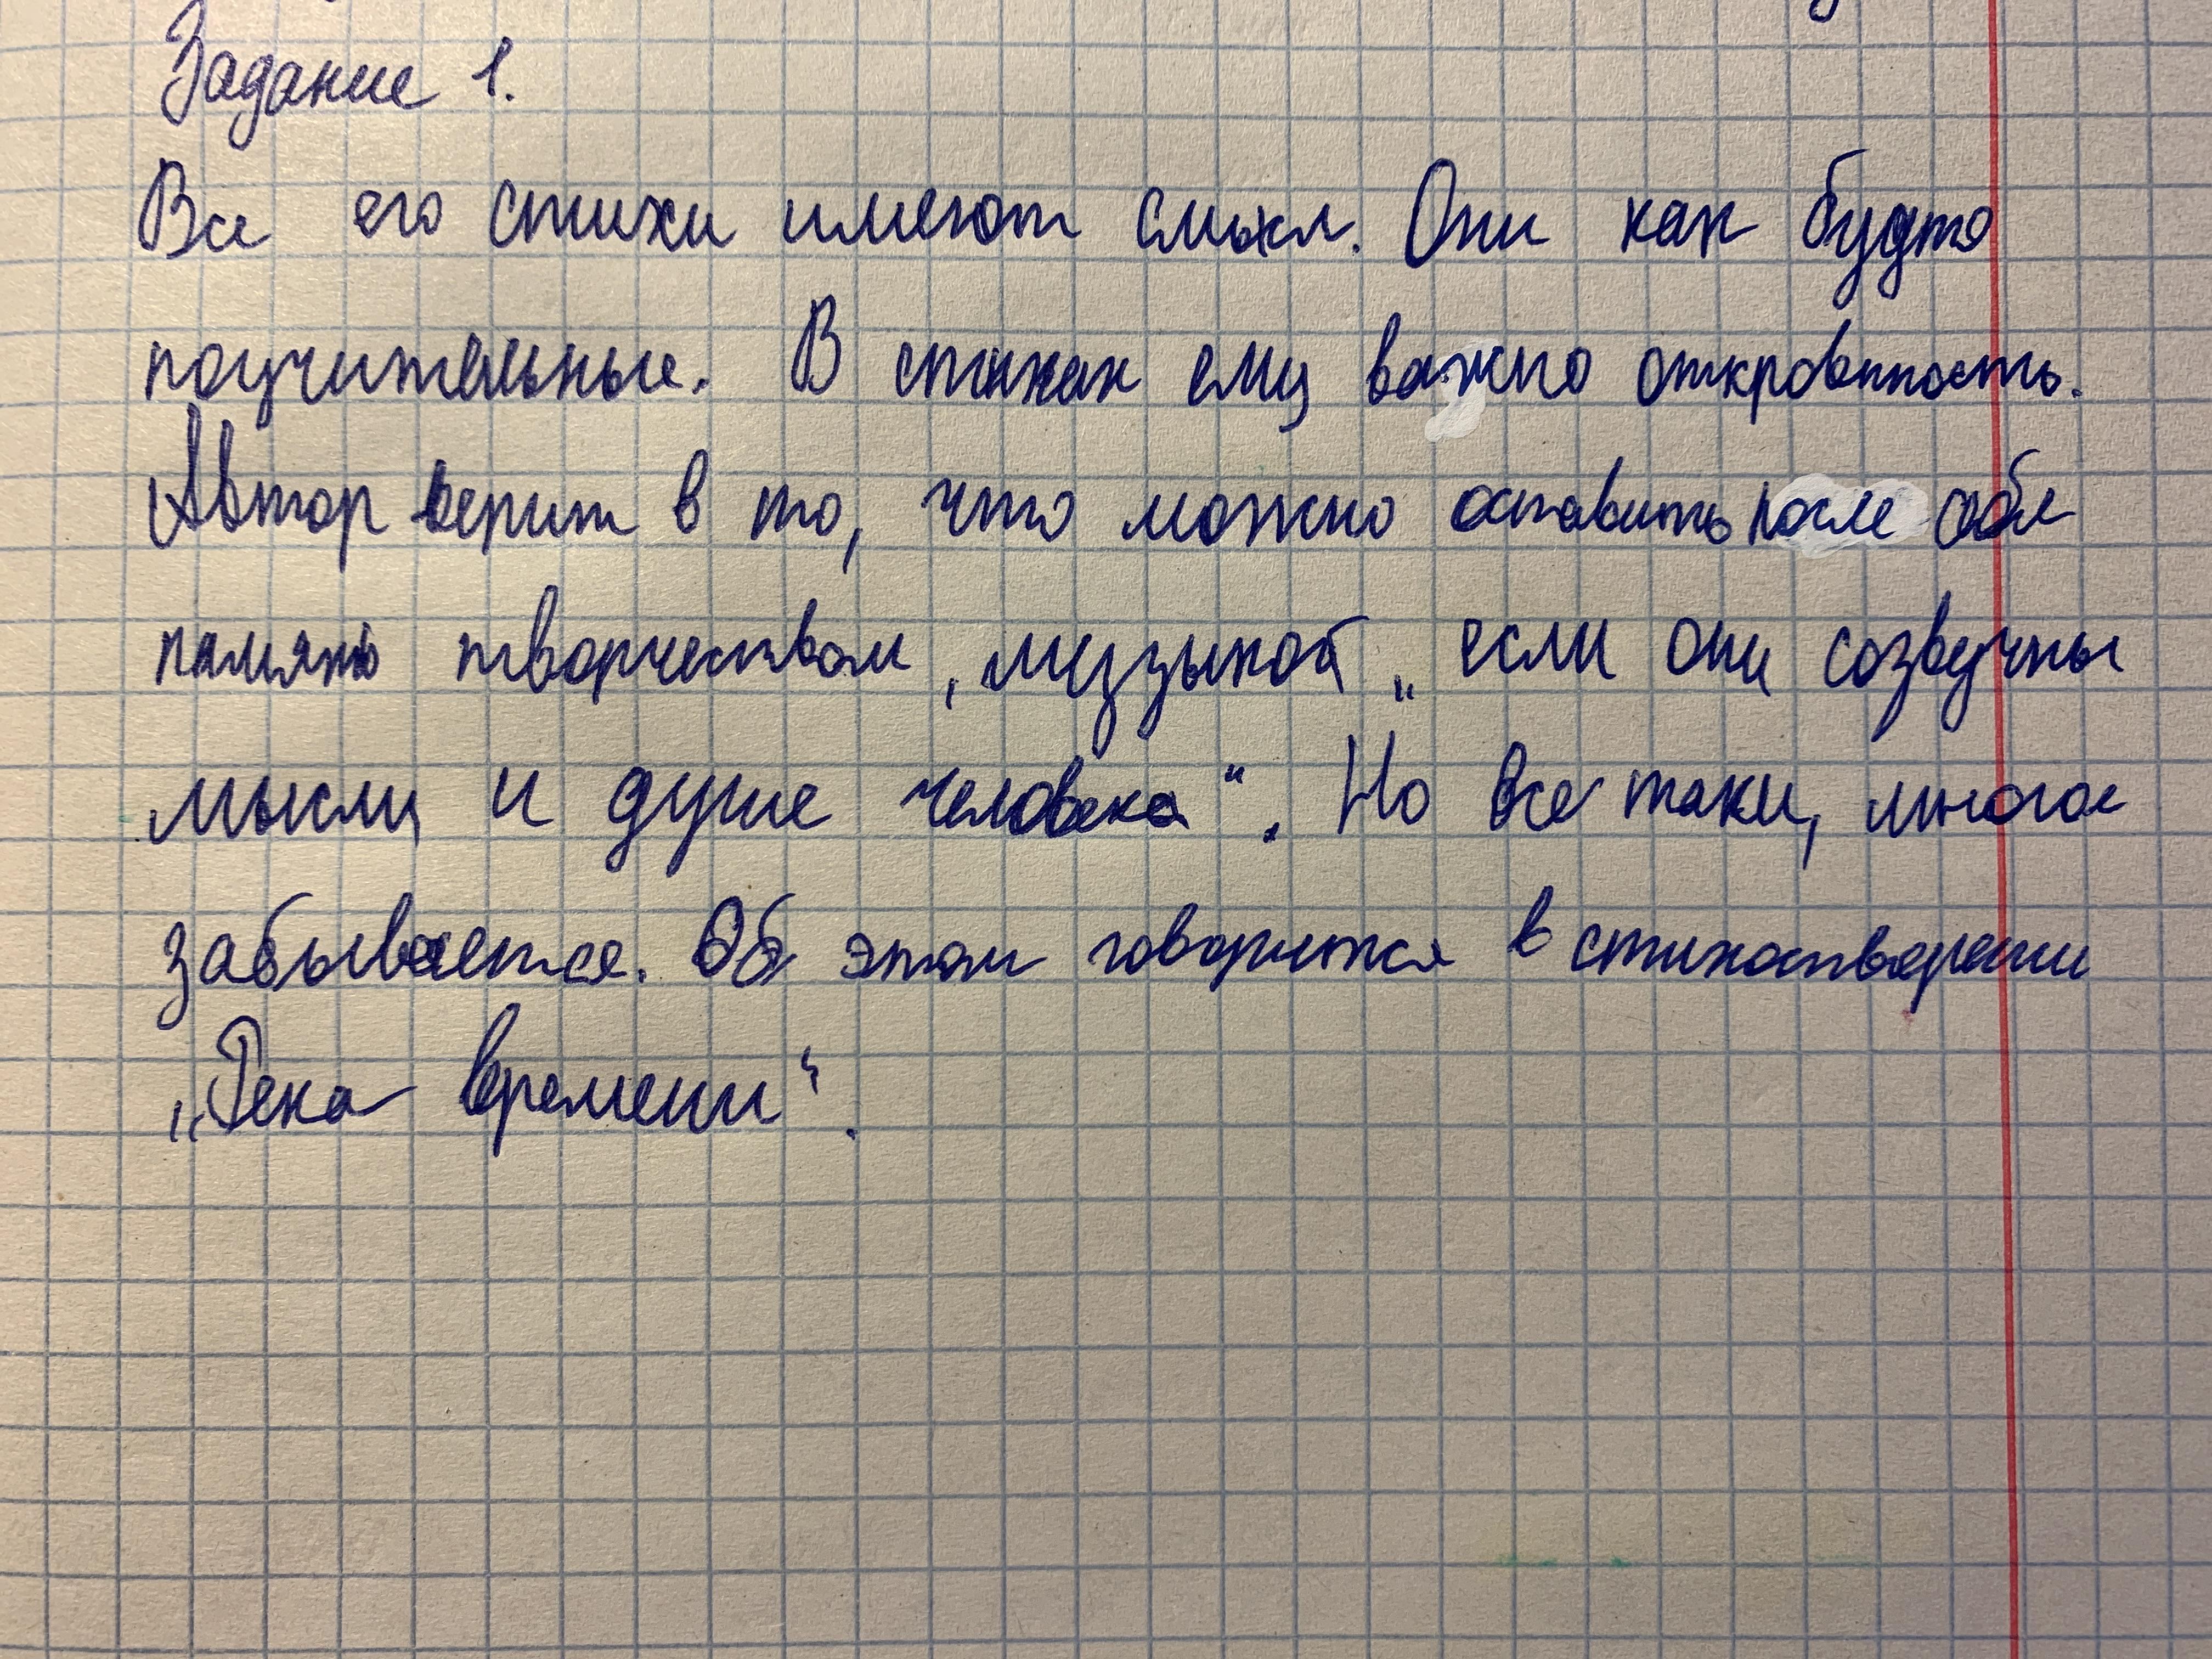 Задание 1.
Все его стихи имеют смысл. Они как будто
поучительные. В стихах ему важно откровенность.
Автор верит в то, что можно оставить после себя
память творчеством, музыкой „если они созвучны
мысли и душе человека“. Но все таки, многое
забывается. Об этом говорится в стихотворении
„Река времени“.